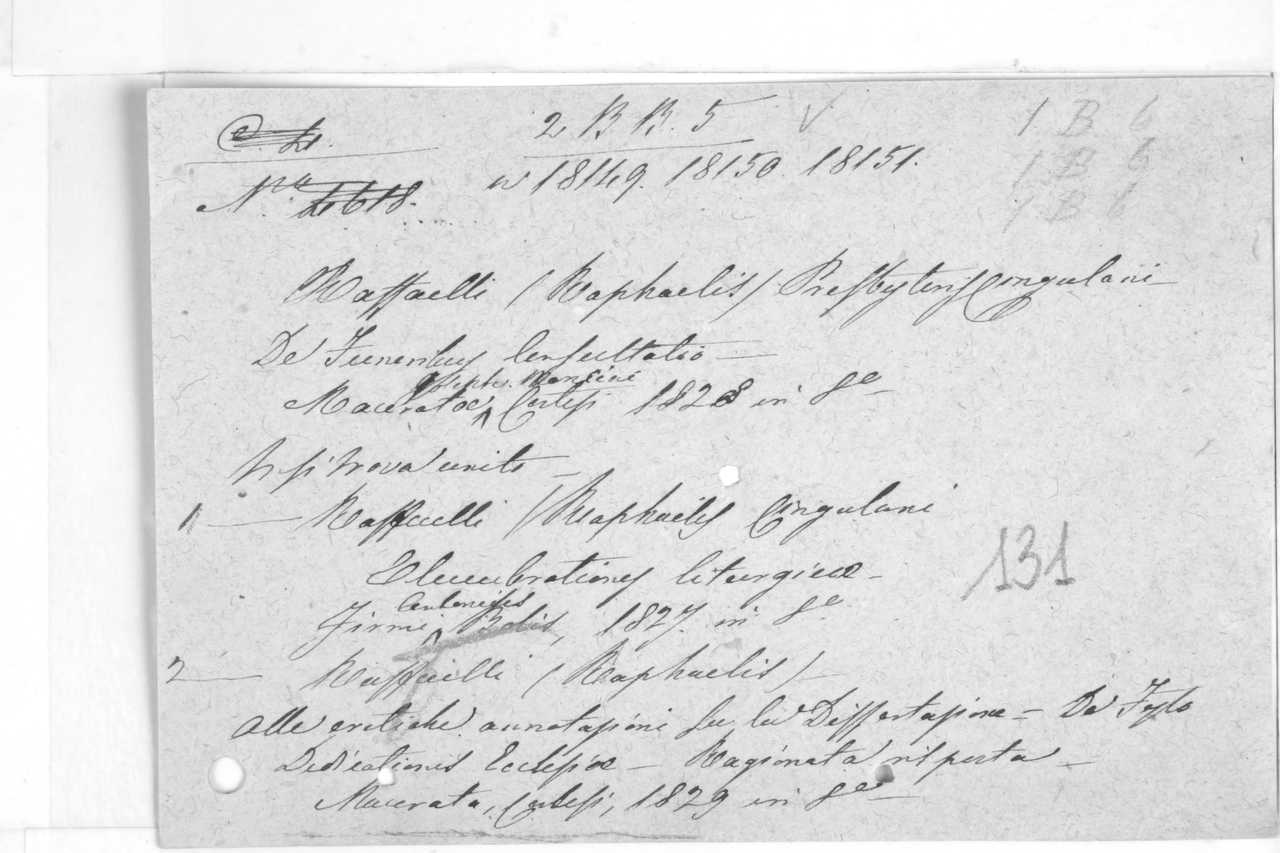 C. 4.
2 B B. 5 V
1 B 6
Nro 4618.
n 18149. 18150. 18151.
1 B 6
1 B 6
Raffaelli (Raphaelis) Presbyteri Cingulani
De Funeribus Consultatio
Josephi Mancini
Maceratæ Cortesi 1828 in 8o
Vi si trova unito
1 Raffaelli (Raphaelis Cingulani
Elucubrationes liturgicæ
131
Firmi Bolis, 1827. in 8o
2 Raffaelli (Raphaelis)
Alle critiche annotazioni su la Dissertazione = De Festo
Dedicationis Ecclesiæ - Ragionata risposta
Macerata, Cortesi, 1829 in 8o